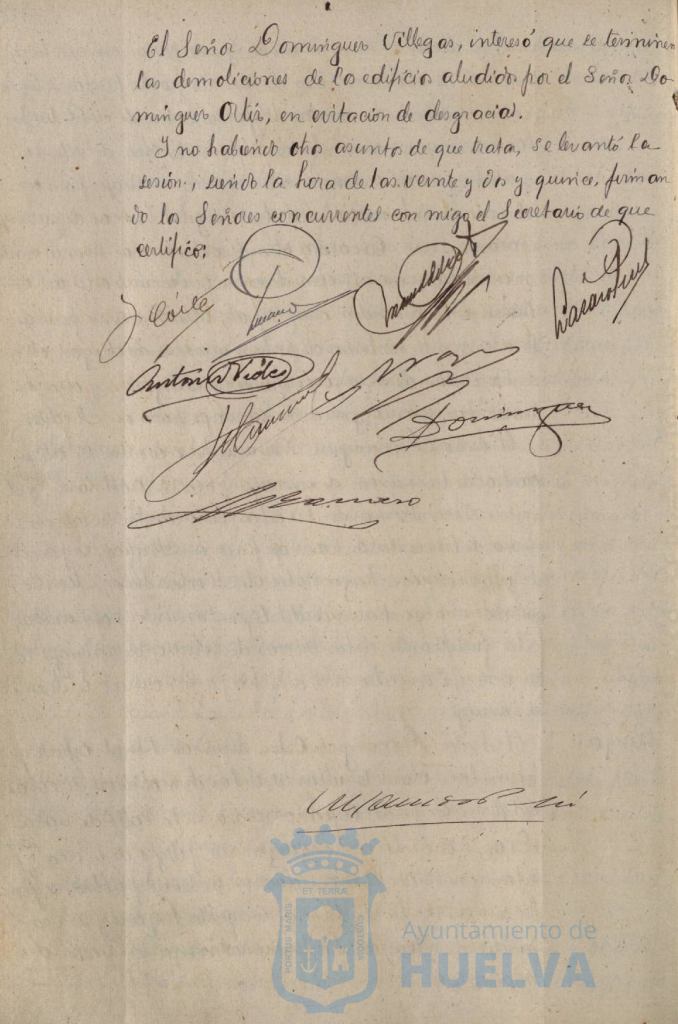 El Señor Dominguez Villegas, interesó que se terminen
las demoliciones de los edificios aludidos por el Señor Do-
minguez Ortiz, en evitacion de desgracias.
Y no habiendo otros asuntos de que tratar, se levantó la
sesión, siendo la hora de las veinte y dos y quince, firman
do los Señores concurrentes con migo el Secretario de que
certifico:
Antonio Vides
Dominguez
ET TERRÆ
PORTUS MARIS
CUSTODIA
Ayuntamiento de
HUELVA